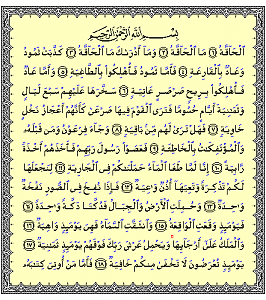 بِسْمِ اللَّهِ الرَّحْمَٰنِ الرَّحِيمِ
الْحَاقَّةُ ۝١ مَا الْحَاقَّةُ ۝٢ وَمَا أَدْرَاكَ مَا الْحَاقَّةُ ۝٣ كَذَّبَتْ ثَمُودُ
وَعَادٌ بِالْقَارِعَةِ ۝٤ فَأَمَّا ثَمُودُ فَأُهْلِكُوا بِالطَّاغِيَةِ ۝٥ وَأَمَّا عَادٌ
فَأُهْلِكُوا بِرِيحٍ صَرْصَرٍ عَاتِيَةٍ ۝٦ سَخَّرَهَا عَلَيْهِمْ سَبْعَ لَيَالٍ
وَثَمَانِيَةَ أَيَّامٍ حُسُومًا فَتَرَى الْقَوْمَ فِيهَا صَرْعَىٰ كَأَنَّهُمْ أَعْجَازُ نَخْلٍ
خَاوِيَةٍ ۝٧ فَهَلْ تَرَىٰ لَهُم مِّن بَاقِيَةٍ ۝٨ وَجَاءَ فِرْعَوْنُ وَمَن قَبْلَهُ
وَالْمُؤْتَفِكَاتُ بِالْخَاطِئَةِ ۝٩ فَعَصَوْا رَسُولَ رَبِّهِمْ فَأَخَذَهُمْ أَخْذَةً
رَّابِيَةً ۝١٠ إِنَّا لَمَّا طَغَا الْمَاءُ حَمَلْنَاكُمْ فِي الْجَارِيَةِ ۝١١ لِنَجْعَلَهَا
لَكُمْ تَذْكِرَةً وَتَعِيَهَا أُذُنٌ وَاعِيَةٌ ۝١٢ فَإِذَا نُفِخَ فِي الصُّورِ نَفْخَةٌ
وَاحِدَةٌ ۝١٣ وَحُمِلَتِ الْأَرْضُ وَالْجِبَالُ فَدُكَّتَا دَكَّةً وَاحِدَةً ۝١٤
فَيَوْمَئِذٍ وَقَعَتِ الْوَاقِعَةُ ۝١٥ وَانشَقَّتِ السَّمَاءُ فَهِيَ يَوْمَئِذٍ وَاهِيَةٌ ۝١٦
وَالْمَلَكُ عَلَىٰ أَرْجَائِهَا وَيَحْمِلُ عَرْشَ رَبِّكَ فَوْقَهُمْ يَوْمَئِذٍ ثَمَانِيَةٌ ۝١٧
يَوْمَئِذٍ تُعْرَضُونَ لَا تَخْفَىٰ مِنكُمْ خَافِيَةٌ ۝١٨ فَأَمَّا مَنْ أُوتِيَ كِتَابَهُ